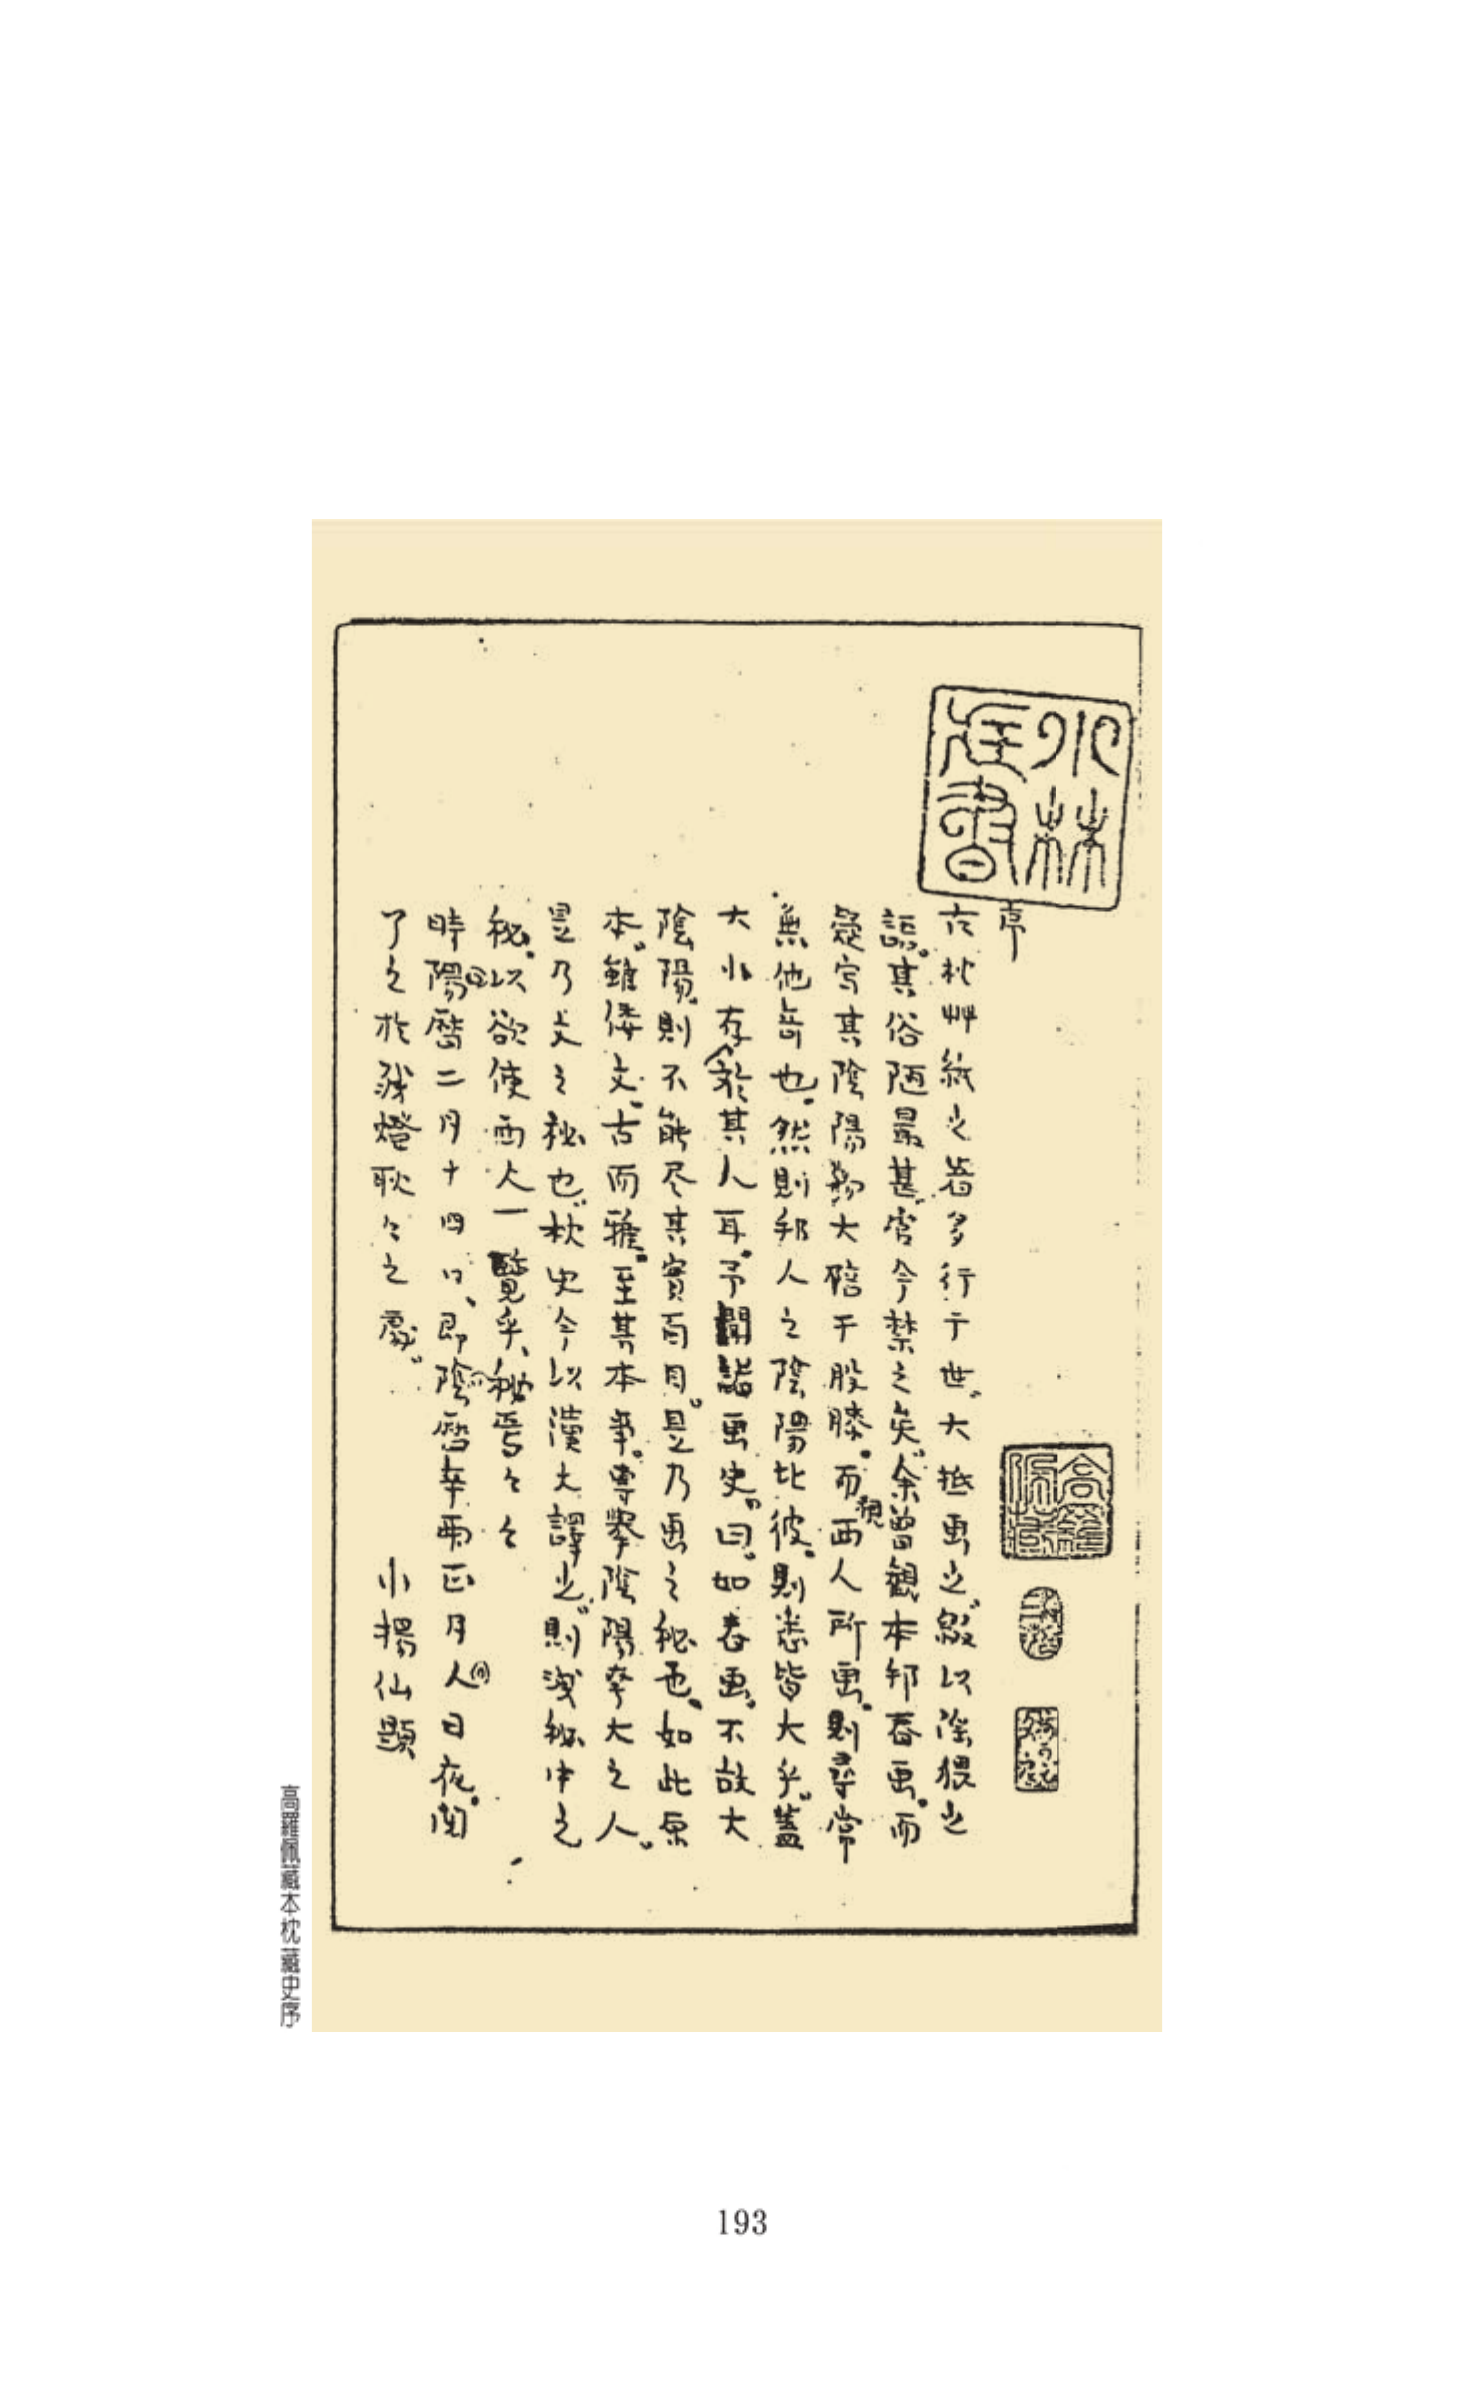 序
枕艸紙之著多行于世大抵画之。綴以淫猥之
語。其俗陋最甚。官今禁之矣。余曽観本邦春画。而
疑写其陰陽物大陪于股膝。而観西人所画。則尋常
無他奇也。然則邦人之陰陽比彼。則悉皆大乎。蓋
大小存於其人耳。予聞諸画史。曰。如春画。不故大
陰陽。則不能尽其實面目。是乃画之秘也。如此原
本。雖倭文。古而雅。至其本事。専擧陰陽大之人。
是乃文之秘也。枕史今以漢文譯之。則洩秘中之
秘。以欲使西人一覧乎、秘焉々々
時陽暦二月十四日、即陰暦辛正月人日夜。閣
了之於残燈耿々之處。 小楊仙題
水林
書
高羅佩藏
高羅佩藏本枕藏史序
193